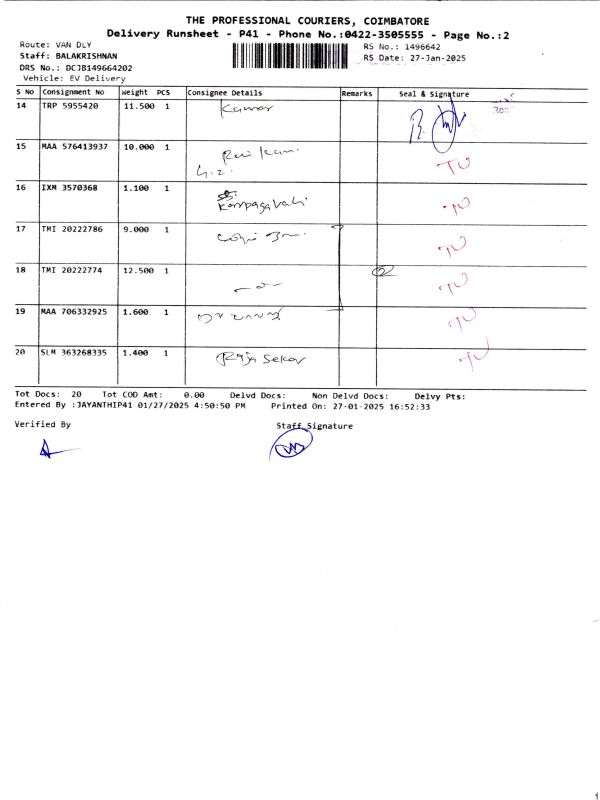 THE PROFESSIONAL COURIERS, COIMBATORE
Delivery Runsheet - P41 - Phone No.:0422-3505555 - Page No.:2
Route: VAN DLY
RS No.: 1496642
Staff: BALAKRISHNAN
RS Date: 27-Jan-2025
DRS No.: DCJB149664202
Vehicle: EV Delivery
S No Consignment No Weight PCS Consignee Details Remarks Seal & Signature
14 TRP 5955420 11.500 1 Kumar
15 MAA 576413937 10.000 1
16 IXM 3570368 1.100 1 Karpagavalli
17 TMI 20222786 9.000 1
18 TMI 20222774 12.500 1 2
19 MAA 706332925 1.600 1
20 SLM 363268335 1.400 1 Raja Sekar
Tot Docs: 20 Tot COD Amt: 0.00 Delvd Docs: Non Delvd Docs: Delvy Pts:
Entered By :JAYANTHIP41 01/27/2025 4:50:50 PM Printed On: 27-01-2025 16:52:33
Verified By Staff Signature